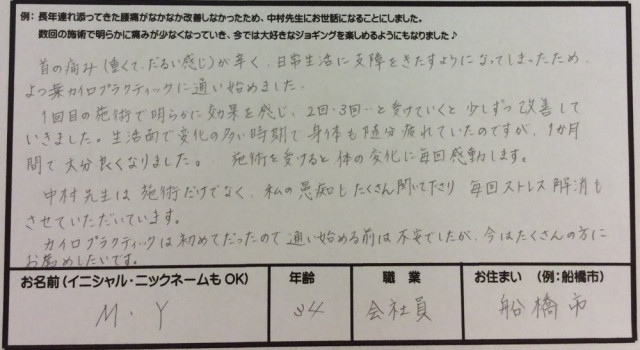 例：長年連れ添ってきた腰痛がなかなか改善しなかったため、中村先生にお世話になることにしました。
数回の施術で明らかに痛みが少なくなっていき、今では大好きなジョギングを楽しめるようにもなりました♪
首の痛み(重くて、だるい感じ)が辛く、日常生活に支障をきたすようになってしまったため、
よつ葉カイロプラクティックに通い始めました。
1回目の施術で明らかに効果を感じ、2回・3回…と受けていくと少しずつ改善して
いきました。生活面で変化の多い時期で身体も随分疲れていたのですが、1か月
間で大分良くなりました。施術を受けると体の変化に毎回感動します。
中村先生は施術だけでなく、私の愚痴もたくさん聞いて下さり毎回ストレス解消も
させていただいています。
カイロプラクティックは初めてだったので通い始める前は不安でしたが、今はたくさんの方に
お薦めしたいです。
お名前(イニシャル・ニックネームもOK) 年齢 職業 お住まい (例：船橋市)
M・Y 34 会社員 船橋市